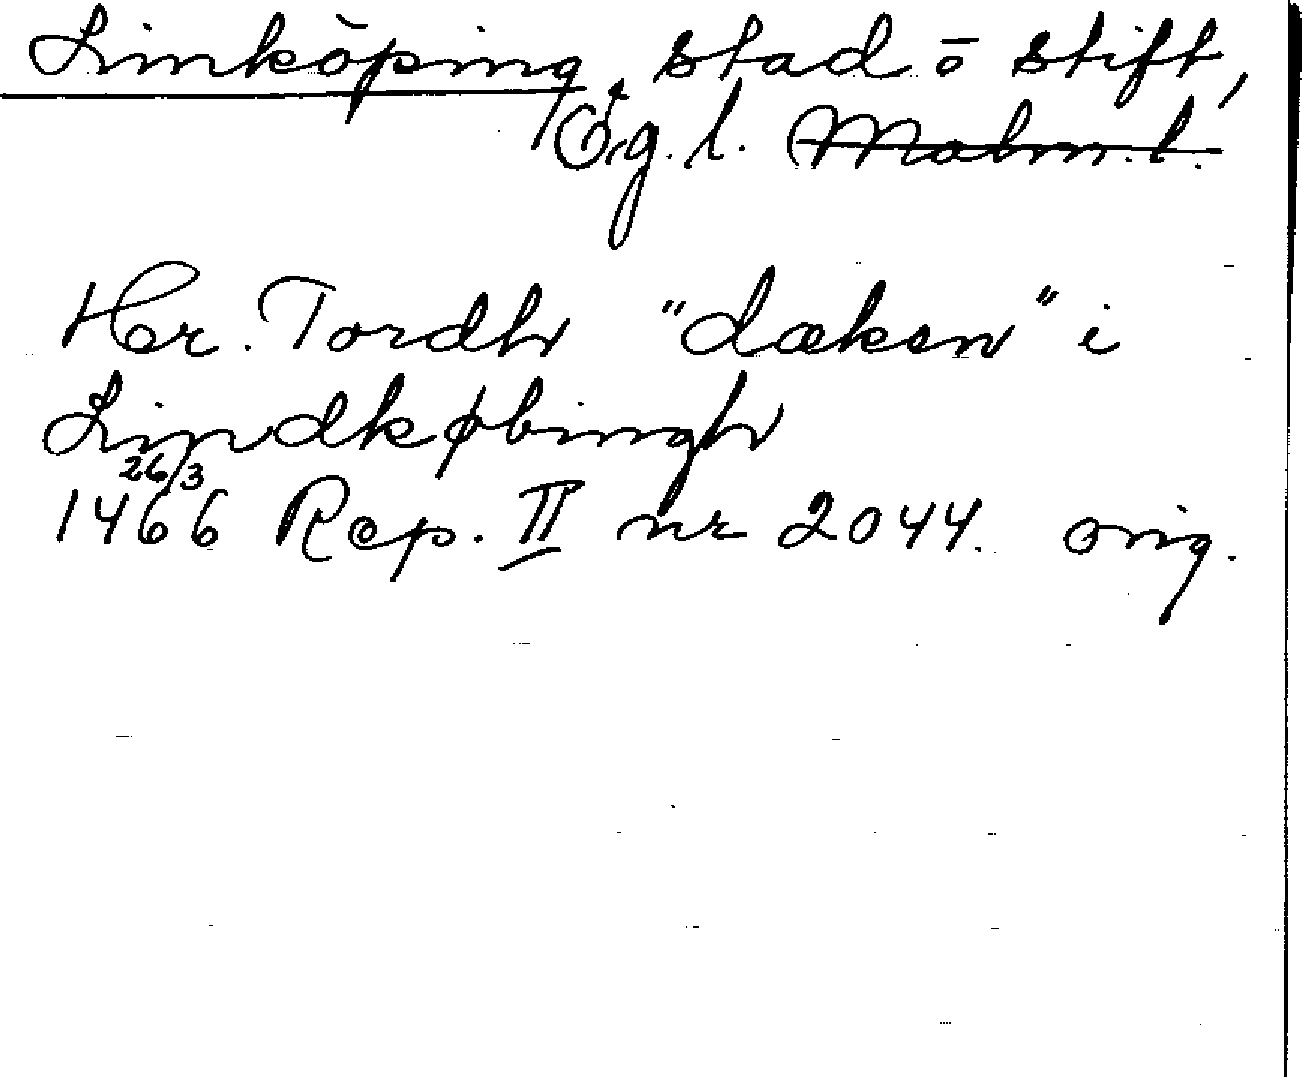 Linköping, stad ō stift,
Ög. l. Malm. l.
Her. Tordh "dæken" i
Lindkøbingh
26/3
1466 Rep. II nr 2044. orig.